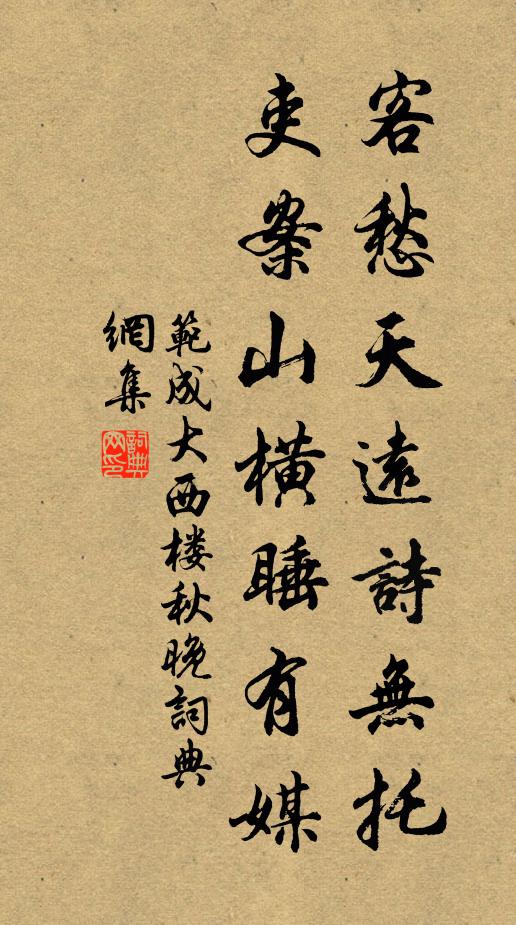 客愁天遠詩無托
吏案山橫睡有媒
範成大西楼秋晚詞典
網集
詞典
网印